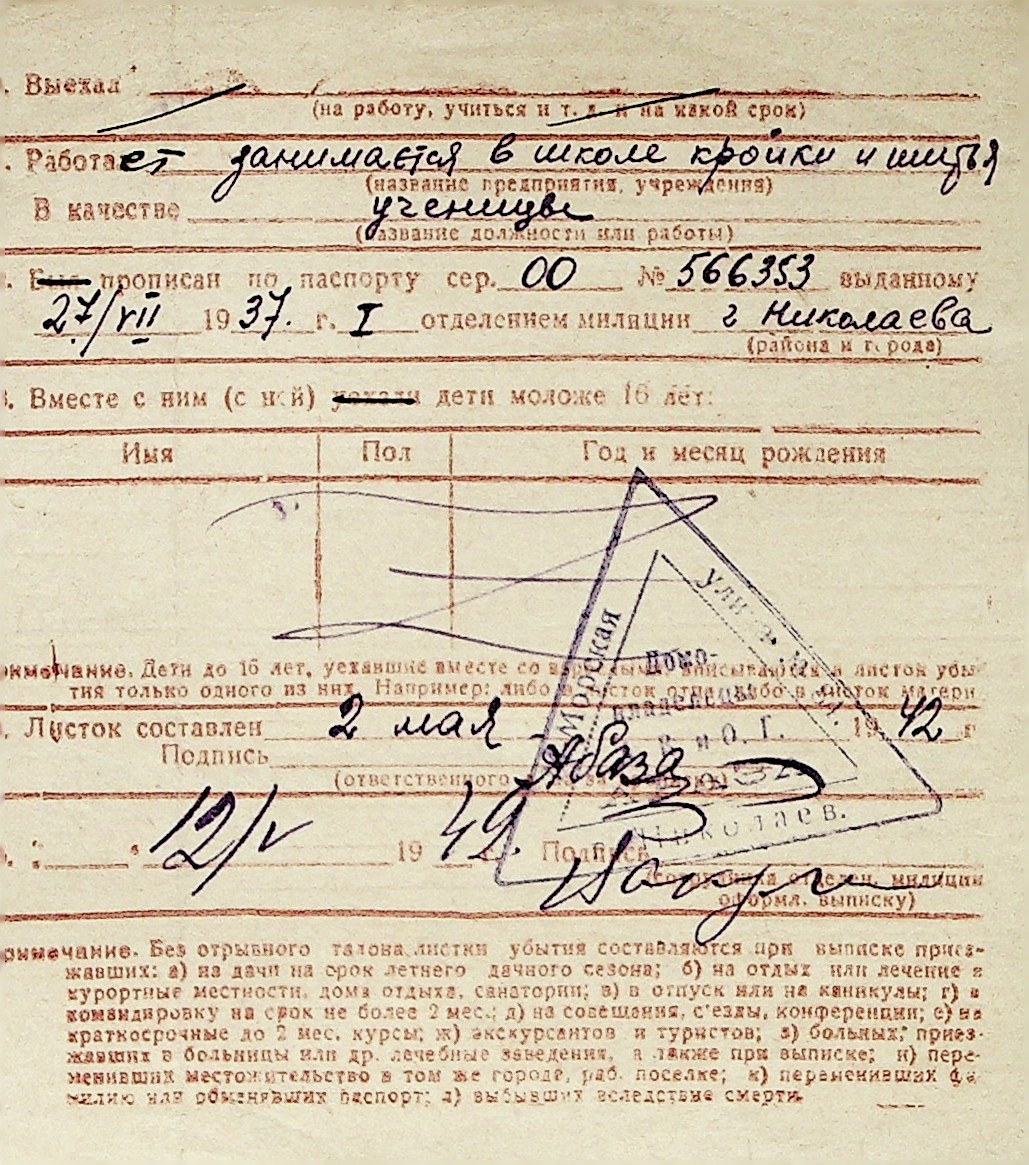 . Выехал
(на работу, учиться и т. д. и на какой срок)
. Работает занимается в школе кройки и шитья
(название предприятия, учреждения)
В качестве ученицы
(название должности или работы)
. Был прописан по паспорту сер. 00 № 566353 выданному
27/VII 1937. г. I отделением милиции г Николаева
(района и города)
. Вместе с ним (с ней) уехали дети моложе 16 лет:
Имя Пол Год и месяц рождения
римечание. Дети до 16 лет, уехавшие вместе со взрослыми, вписываются в листок убы-
тия только одного из них. Например: либо в листок отца, либо в листок матери
. Листок составлен 2 мая 1942 г
Подпись Абаза
(ответственного за
12/V 1942 г. Подпись
(сотрудника отделен. милиции
оформл. выписку)
Морская
улица
Домо-
владелец
и О. Г.
г. Николаев.
римечание. Без отрывного талона листки убытия составляются при выписке приез-
жавших: а) на дачи на срок летнего дачного сезона; б) на отдых или лечение в
курортные местности, дома отдыха, санатории; в) в отпуск или на каникулы; г) в
командировку на срок не более 2 мес.; д) на совещания, с'езды, конференции; е) на
краткосрочные до 2 мес. курсы; ж) экскурсантов и туристов; з) больных, приез-
жавших в больницы или др. лечебные заведения, а также при выписке; и) пере-
менивших местожительство в том же городе, раб. поселке; к) переменивших фа-
милию или обменявших паспорт; л) выбывших вследствие смерти.